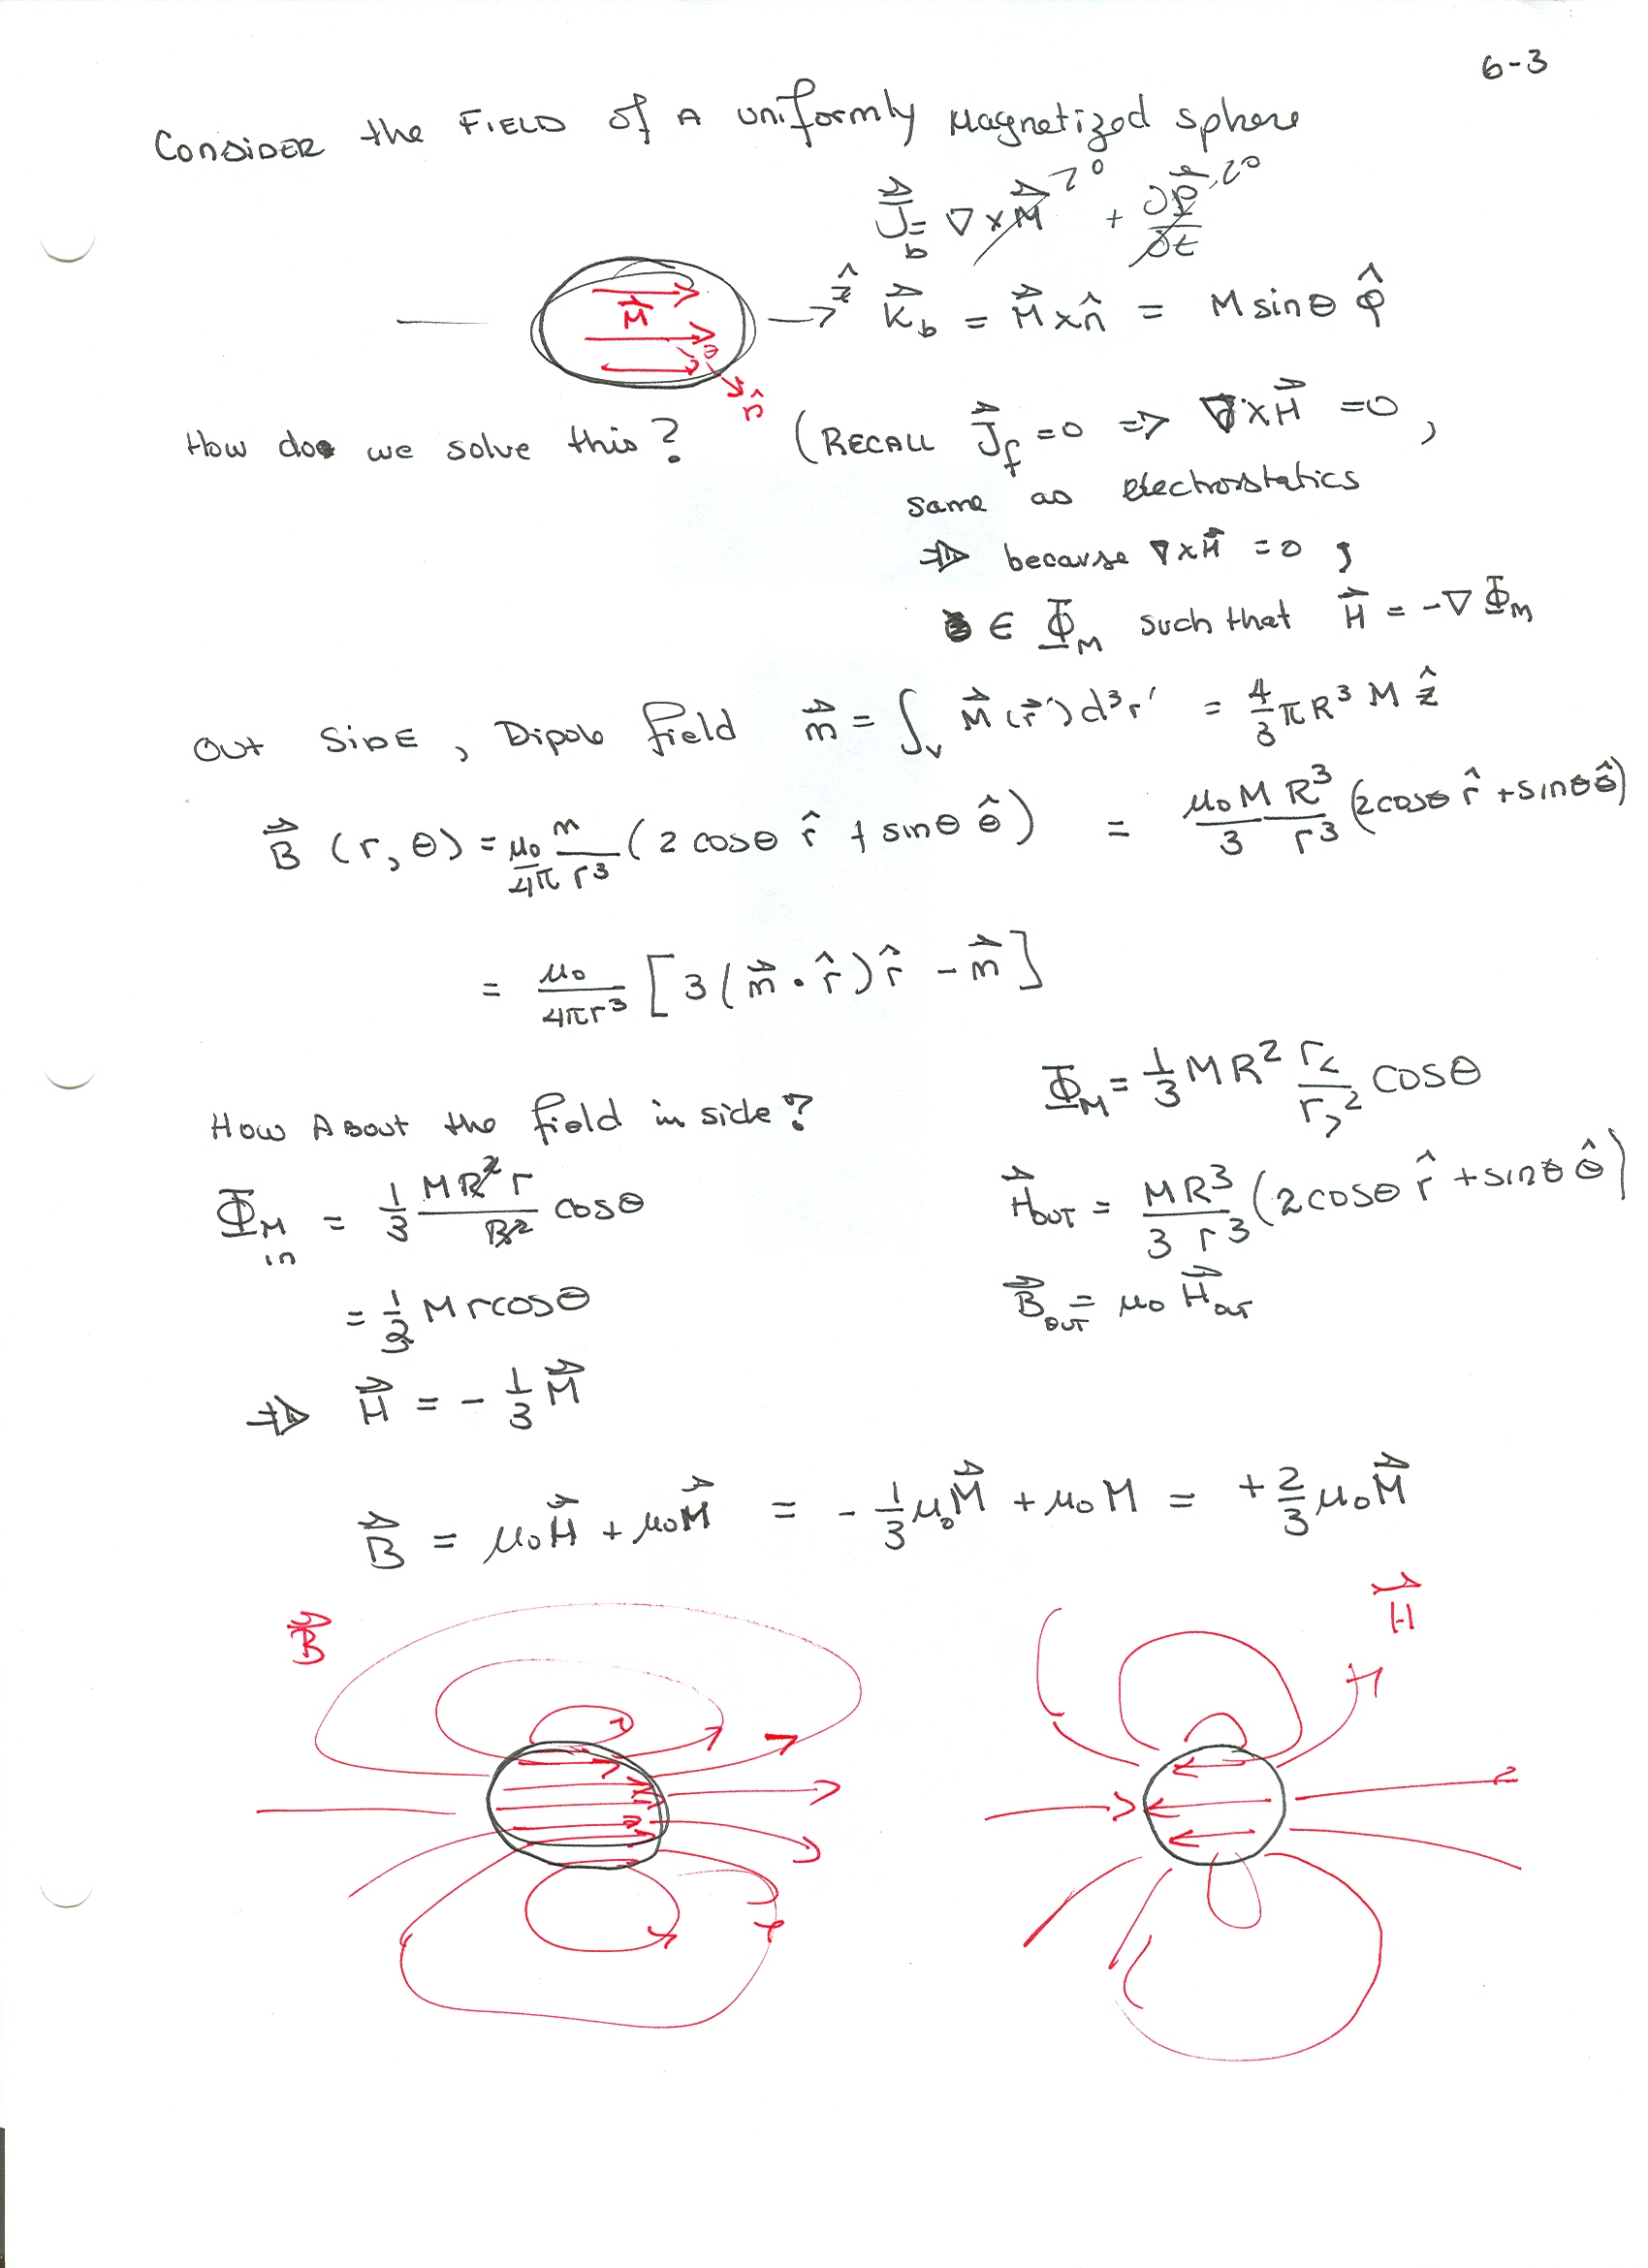 6-3
Consider the Field of a uniformly Magnetized sphere
J⃗_b = ∇×M⃗ →0 + ∂P⃗/∂t →0
M⃗ → ẑ K⃗_b = M⃗×n̂ = M sinθ φ̂
θ
n̂
How do we solve this? (Recall J⃗_f = 0 ⇒ ∇×H⃗ = 0,
same as electrostatics
⇒ because ∇×H⃗ = 0 ;
∈ Φ_M such that H⃗ = -∇Φ_M
Out Side, Dipole field m⃗ = ∫_V M⃗(r⃗')d³r' = 4/3 πR³ M ẑ
B⃗ (r, θ) = μ₀/4π m/r³ (2 cosθ r̂ + sinθ θ̂) = μ₀M/3 R³/r³ (2cosθ r̂ + sinθ θ̂)
= μ₀/4πr³ [3(m⃗ · r̂) r̂ - m⃗]
Φ_M = 1/3 MR² r_</r_>² cosθ
How About the field in side?
Φ_M in = 1/3 MR²r/R² cosθ
H⃗_OUT = MR³/3r³ (2cosθ r̂ + sinθ θ̂)
= 1/3 M r cosθ
B⃗_OUT = μ₀ H⃗_OUT
⇒ H⃗ = -1/3 M⃗
B⃗ = μ₀H⃗ + μ₀M⃗ = -1/3 μ₀M⃗ + μ₀M = +2/3 μ₀M⃗
B⃗ H⃗